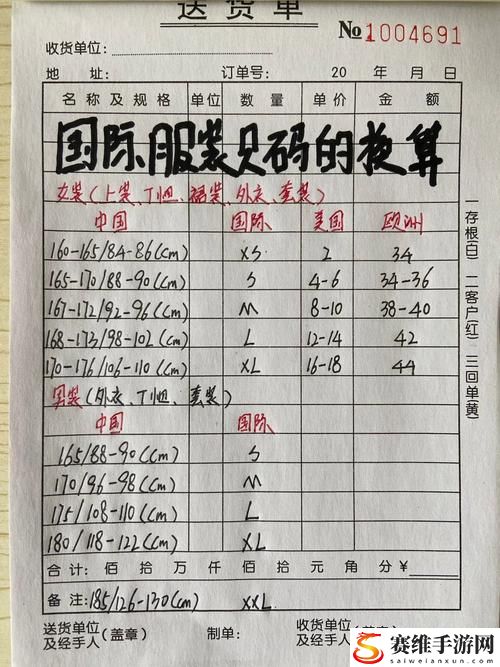 送货单
№1004691
收货单位:
地 址: 订单号: 20 年 月 日
名称及规格 单位 数量 单价 金额
国际服装尺码的换算
女装(上装、T恤、裙装、外衣、套装)
中国 国际 美国 欧洲
160-165/84-86(cm) XS 2 34
165-170/88-90(cm) S 4-6 34-36
167-172/92-96(cm) M 8-10 38-40
168-173/98-102(cm) L 12-14 42
170-176/106-110(cm) XL 16-18 44
男装(外衣、T恤、套装)
中国 国际
165/88-90(cm) S
170/96-98(cm) M
175/108-110(cm) L
180/118-122(cm) XL
合计: 佰 拾 万 仟 佰 拾 元 角 分 ¥
备注: 185/126-130(cm) XXL
送货单位及经手人(盖章) 制单: 收货单位及经手人(盖章)
一存根(白) 二客户(红) 三回单(黄)
赛维手游网
www.saiweienxun.com